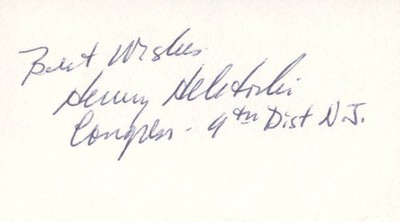 Best Wishes
Henry Helstoski
Congress - 9th Dist N.J.